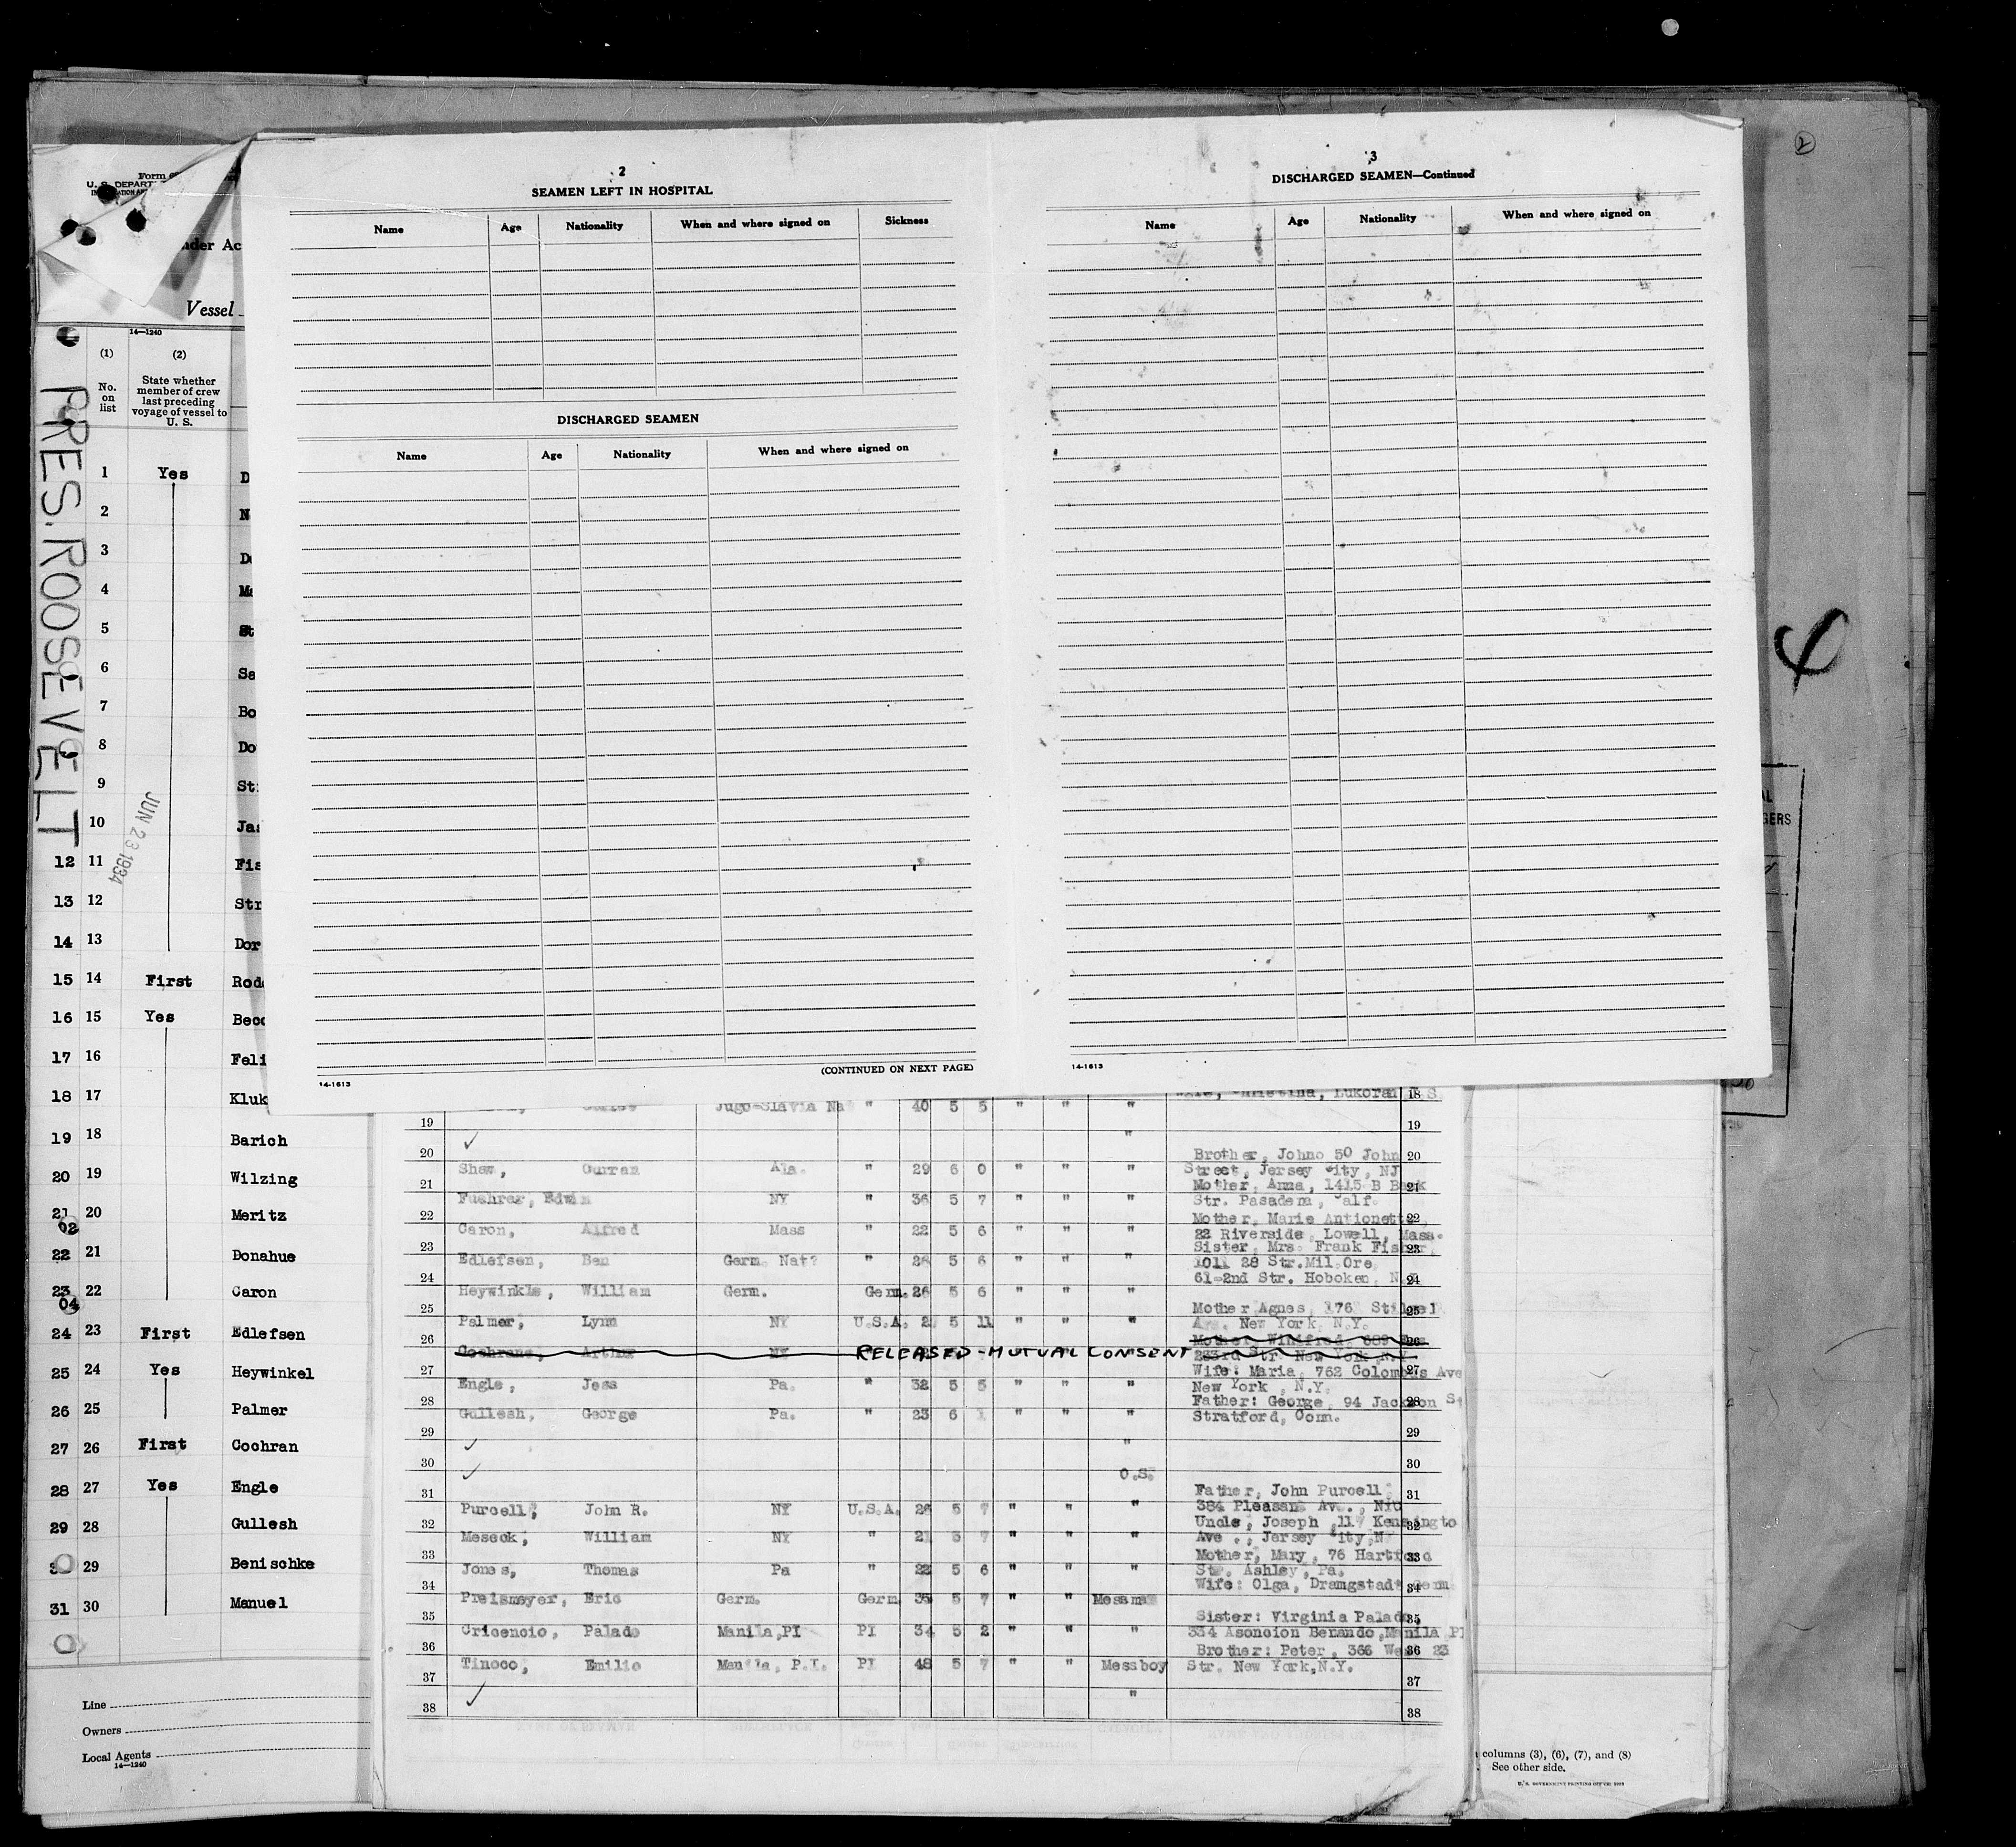 2
2
SEAMEN LEFT IN HOSPITAL
Name Age Nationality When and where signed on Sickness
DISCHARGED SEAMEN
Name Age Nationality When and where signed on
(CONTINUED ON NEXT PAGE)
14-1613
3
DISCHARGED SEAMEN—Continued
Name Age Nationality When and where signed on
14-1613
Form
U. S. DEPART
Vessel
14—1240
(1) (2)
No. on list
State whether
member of crew
last preceding
voyage of vessel to
U. S.
PRES. ROOSEVELT
JUN 23 1934
1 Yes D
2 N
3 De
4 Ma
5 St
6 Sa
7 Bo
8 Do
9 St
10 Ja
12 11 Fis
13 12 Str
14 13 Dor
15 14 First Rod
16 15 Yes Bec
17 16 Feli
18 17 Kluk
19 18 Barich
20 19 Wilzing
21 20 Meritz
02
22 21 Donahue
23 22 Caron
04
24 23 First Edlefsen
25 24 Yes Heywinkel
26 25 Palmer
27 26 First Cochran
28 27 Yes Engle
29 28 Gullesh
29 Benischke
31 30 Manuel
Line
Owners
Local Agents
14—1240
Christina, Lukoran 18
19 Jugo-Slavia Na " 40 5 5 " " " 19
20 ✓ " 20
Brother, Johno 50 John
21 Shaw, Curran Ala. " 29 6 0 " " " Street, Jersey City, NJ 21
Mother, Anna, 1415 B Bank
22 Fuehrer, Edwin NY " 36 5 7 " " " Str. Pasadena, Calf. 22
Mother, Marie Antionette,
23 Caron, Alfred Mass " 22 5 6 " " " 22 Riverside, Lowell, Mass. 23
Sister, Mrs. Frank Fisher,
24 Edlefsen, Ben Germ. Nat? " 26 5 6 " " " 1011 28 Str. Mil. Ore 24
61-2nd Str. Hoboken, N.J.
25 Heywinkle, William Germ. Germ. 26 5 6 " " " 25
Mother Agnes, 176 Stilwel
26 Palmer, Lynn NY U.S.A. 2 5 11 " " " Av. New York, N.Y. 26
Mother, Winifred, 689 Eas
27 Cochrane, Arthur NY RELEASED-MUTUAL CONSENT 233rd Str. New York, N.Y. 27
Wife: Maria, 762 Colombus Ave
28 Engle, Jess Pa. " 32 5 5 " " " New York, N.Y. 28
Father: George, 94 Jackson St
29 Gullesh, George Pa. " 23 6 1 " " " Stratford, Conn. 29
30 ✓ " 30
31 ✓ O.S. 31
Father, John Purcell,
32 Purcell, John R. NY U.S.A. 26 5 7 " " " 384 Pleasant Ave., NYC 32
Uncle, Joseph, 117 Kensingto
33 Meseck, William NY " 21 5 7 " " " Ave., Jersey City, N 33
Mother, Mary, 76 Hartford
34 Jones, Thomas Pa " 22 5 6 " " " Str. Ashley, Pa. 34
Wife: Olga, Dramgstadt Germ
35 Preismeyer, Eric Germ. Germ 35 5 7 " " Messman 35
Sister: Virginia Palado,
36 Cricencio, Palado Manila, PI PI 34 5 2 " " " 334 Asoncion Benando, Manila PI 36
Brother: Peter, 366 West 23
37 Tinoco, Emilio Manila, P.I. PI 48 5 7 " " Messboy Str. New York, N.Y. 37
38 ✓ " 38
columns (3), (6), (7), and (8)
See other side.
U. S. GOVERNMENT PRINTING OFFICE